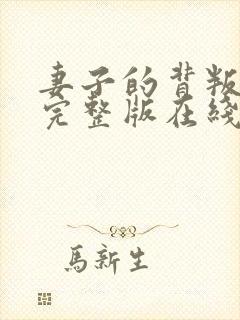 妻子的背叛
完整版在綫
馬新生